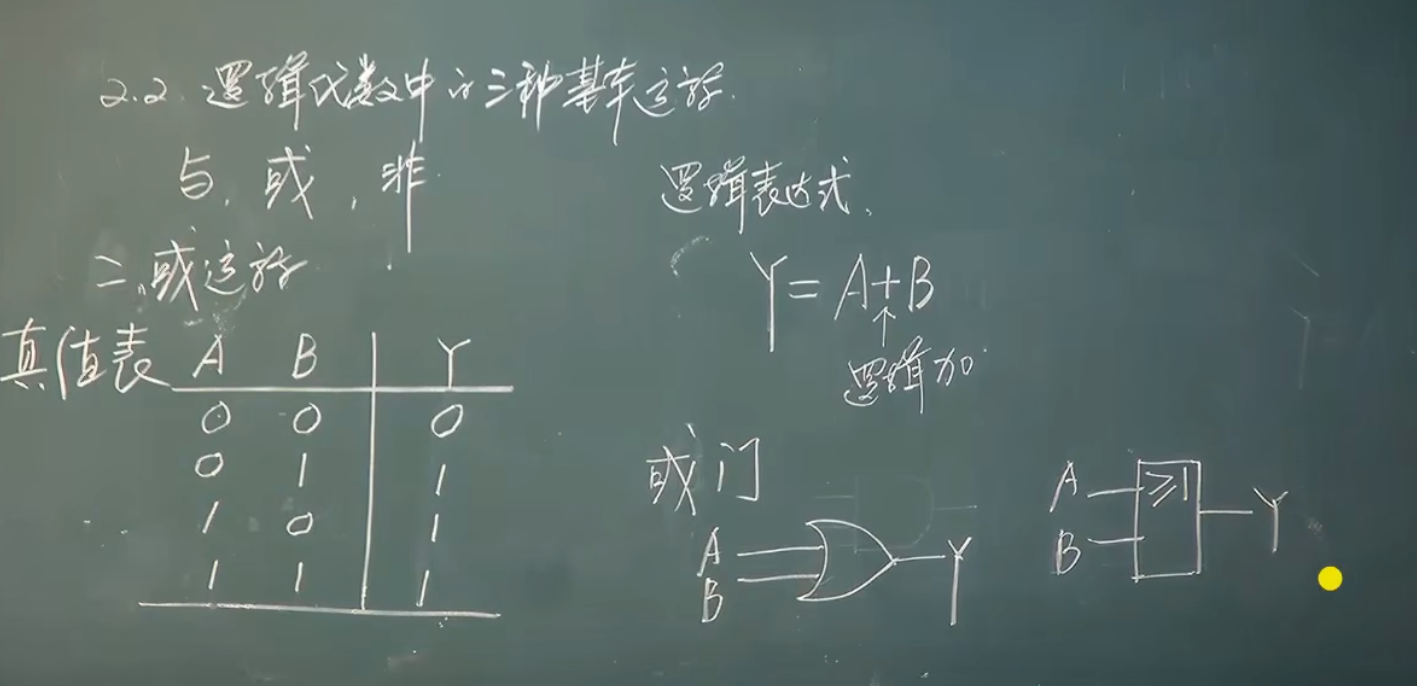 2.2 逻辑代数中的三种基本运算.
与, 或, 非.
二、或运算
真值表 A B Y
0 0 0
0 1 1
1 0 1
1 1 1
逻辑表达式,
Y = A+B
↑
逻辑加
或门
A
B
Y
A
B
≥1
Y